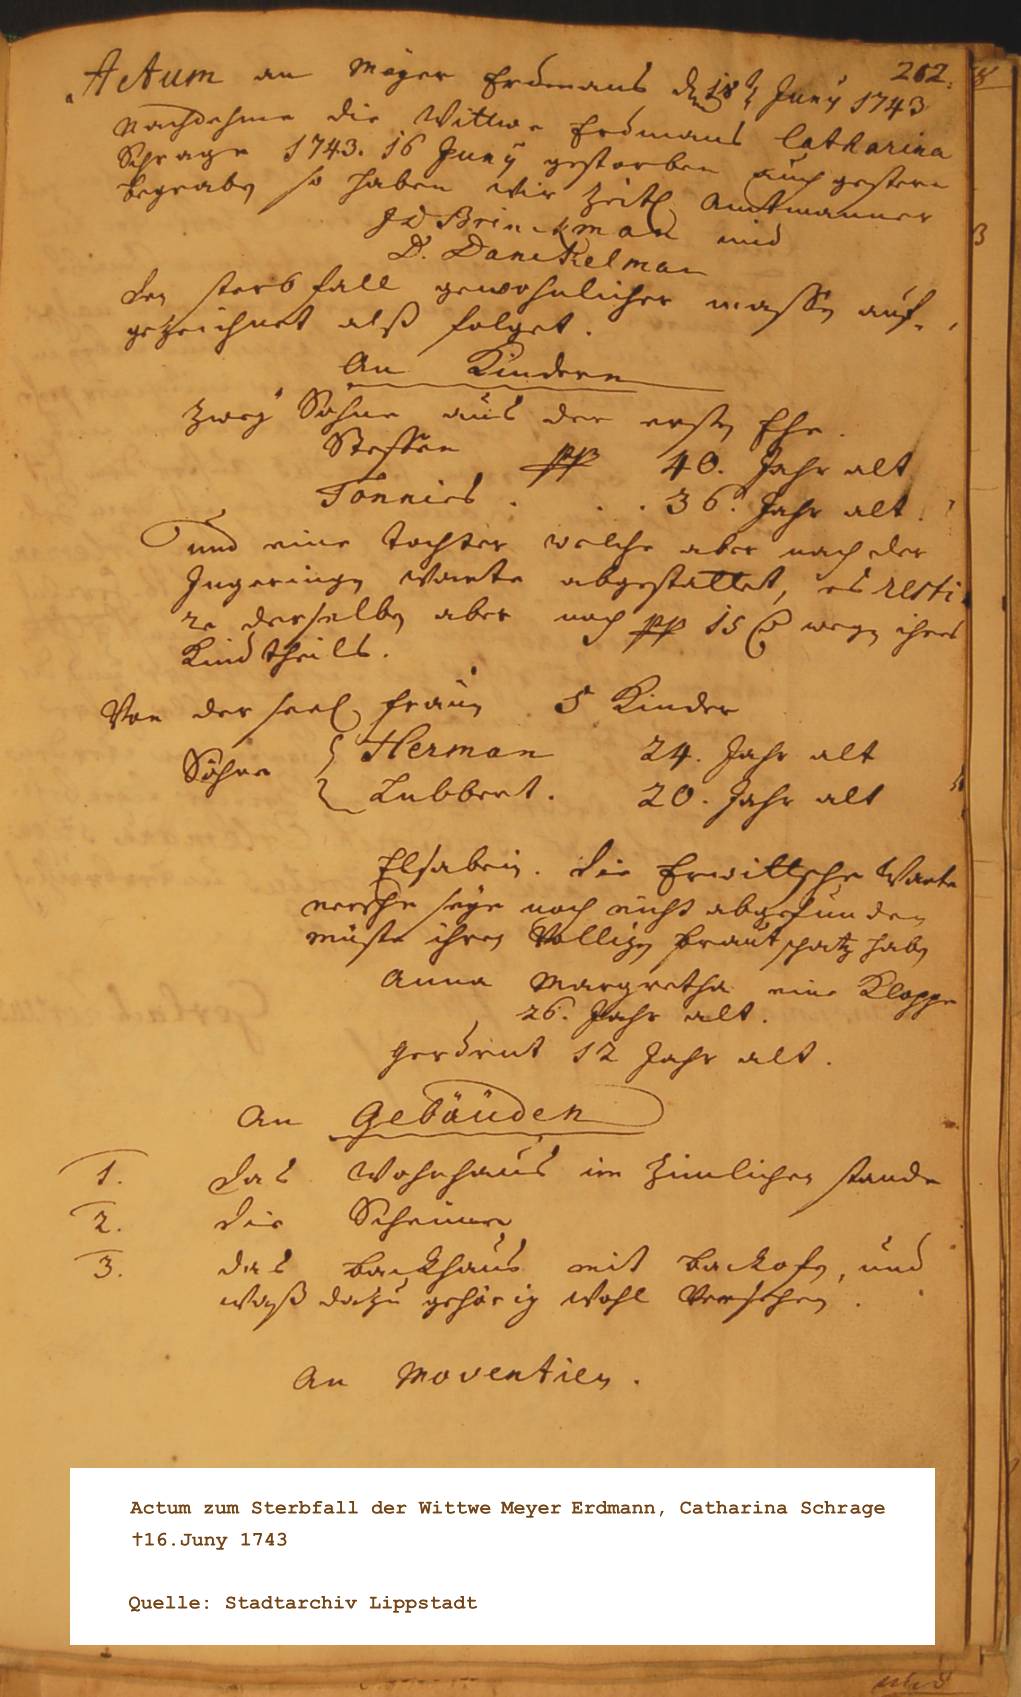 262.
Actum an Meyer Erdmans d 18t Juny 1743
Nachdehme die Wittwe Erdmans Catharina
Schrage 1743. 16 Juny gestorben auch gestern
begraben so haben wir zeitl Amtmanner
JD Brinckman und
D. Danckelman
den sterbfall gewohnlicher massen auf-
gezeichnet alß folget.
An Kindern
zwey Sohne aus der ersten Ehe.
Steffen pp 40. Jahr alt
Tönnies . . . 36. Jahr alt.
und eine tochter welche aber nach der
abgestattet, es resti
re derselben aber noch pp 15 wegen ihres
Kindtheils.
Von der seel frauen 5 Kinder
Söhne Herman 24. Jahr alt
Lubbert. 20. Jahr alt
Elsabein. die Erwittsche Warte
seye noch nicht abgefunden
müste ihren Volligen brautschatz haben
Anna Margretha eine Kloppe
26. Jahr alt.
Gerdrut 12 Jahr alt.
An Gebäuden
1. das Wohnhaus im zimlichen stande
2. die Scheuren
3. das backhaus mit backofen, und
waß dazu gehörig wohl Versehen.
An Moventien.
Actum zum Sterbfall der Wittwe Meyer Erdmann, Catharina Schrage
†16.Juny 1743
Quelle: Stadtarchiv Lippstadt